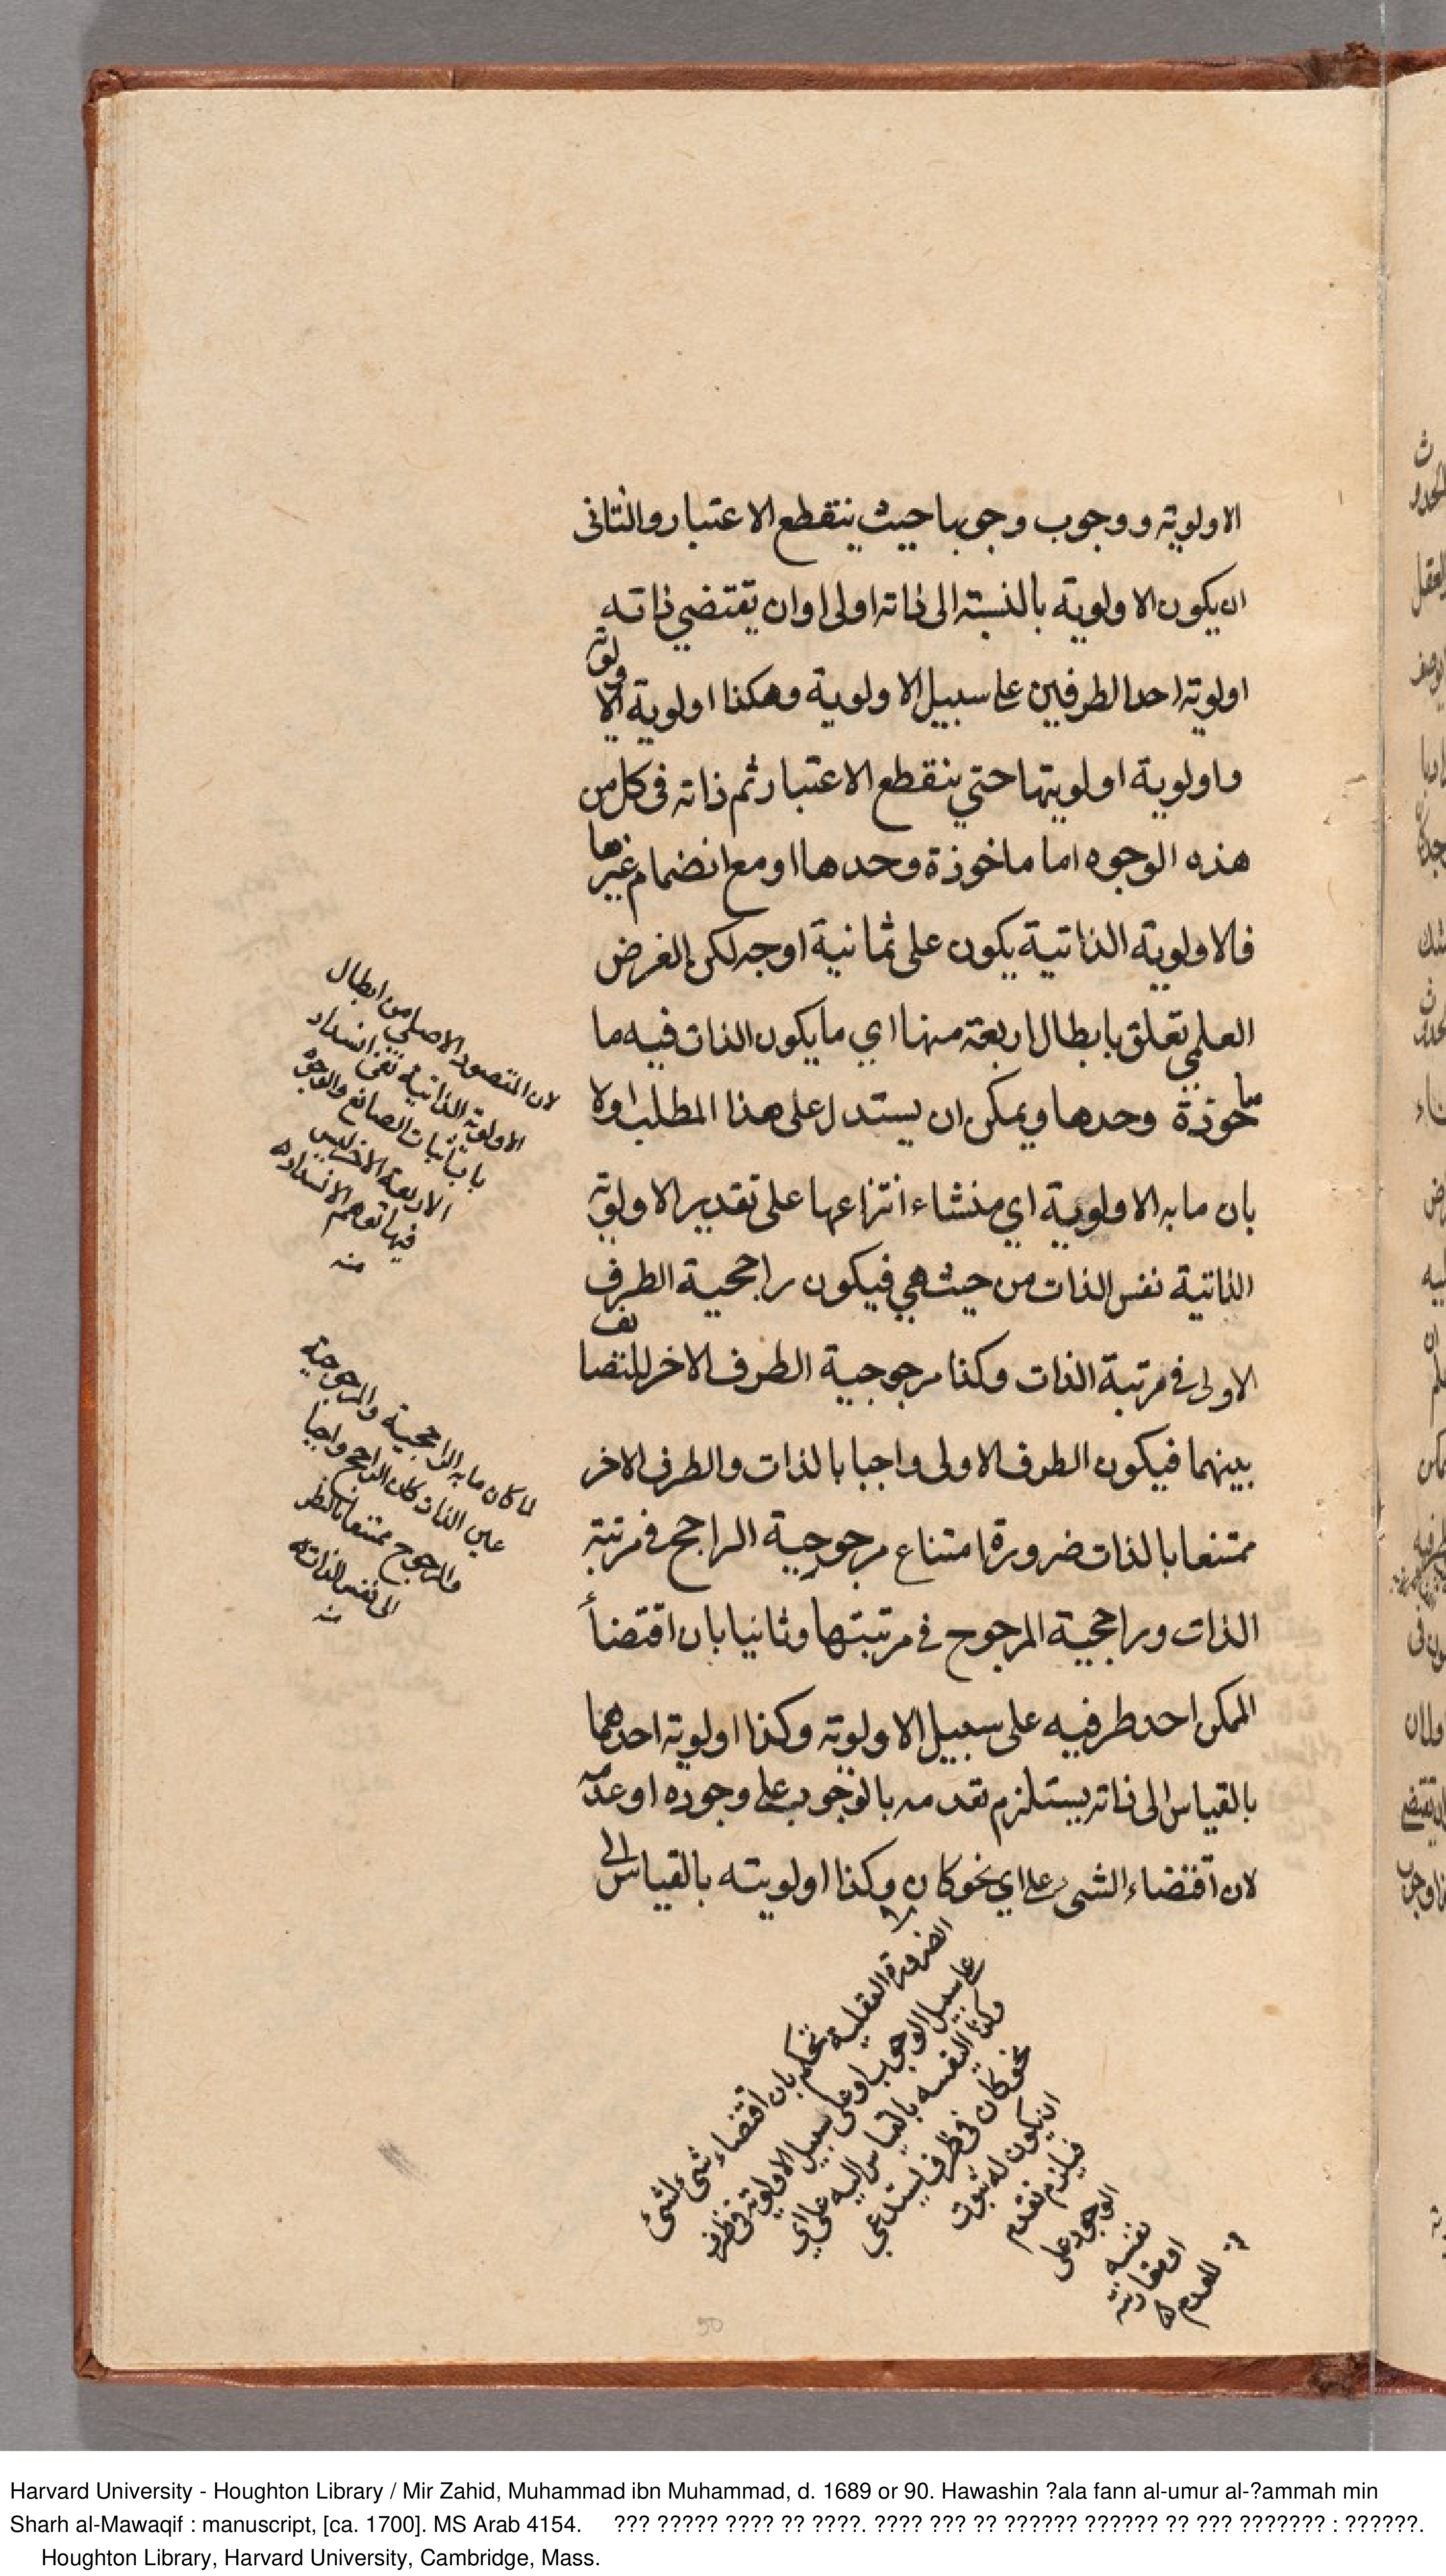 الاولوية ووجوب وجوبها حيث ينقطع الاعتبار والثانى
ان يكون الاولوية بالنسبة الى ذاته اولى او ان يقتضي ذاته
اولوية احد الطرفين على سبيل الاولوية وهكذا اولوية الاولوية
واولوية اولويتها حتي ينقطع الاعتبار ثم ذاته فى كل من
هذه الوجوه اما ماخوذة وحدها او مع انضمام غيرها
فالاولوية الذاتية يكون على ثمانية اوجه لكن الغرض
العلمي تعلق بابطال اربعة منها اي ما يكون الذات فيه ما
خوذة وحدها ويمكن ان يستدل على هذا المطلب اولا
بان ما به الاولوية اي منشاء انتزاعها على تقدير الاولوية
الذاتية نفس الذات من حيث هي فيكون راجحية الطرف
الاولى في مرتبة الذات وكذا مرجوحية الطرف الاخر للتضايف
بينهما فيكون الطرف الاولى واجبا بالذات والطرف الاخر
ممتنعا بالذات ضرورة امتناع مرجوحية الراجح في مرتبة
الذات وراجحية المرجوح في مرتبتها وثانيا بان اقتضأ
الممكن احد طرفيه على سبيل الاولوية وكذا اولوية احدهما
بالقياس الى ذاته يستلزم تقدمه بالوجوب على وجوده او عدمه
لان اقتضاء الشى على اي نحو كان وكذا اولويته بالقياس الى
لان المقصود الاصلي من ابطال
الاولوية الذاتية نفى انسداد
باب اثبات الصانع والوجوه
الاربعة الاخر ليس
فيها توهم الانسداد
منه
لما كان ما به الراجحية والمرجوحية
عين الذات كان الراجح واجبا
والمرجوح ممتنعا بالنظر
الى نفس الذات
منه
الضرورة العقلية تحكم بان اقتضاء شى لشئ
على سبيل الوجوب او على سبيل الاولوية فى ظرف
وكذا النفسه بالقياس اليه على اي
نحو كان فى ظرف يستدعي
ان يكون له ثبوت
فيلزم تقدم
الوجود على
نفسه
او مقارنة
للعدم
50
Harvard University - Houghton Library / Mir Zahid, Muhammad ibn Muhammad, d. 1689 or 90. Hawashin ?ala fann al-umur al-?ammah min
Sharh al-Mawaqif : manuscript, [ca. 1700]. MS Arab 4154. ??? ????? ???? ?? ????. ???? ??? ?? ?????? ?????? ?? ??? ??????? : ??????.
Houghton Library, Harvard University, Cambridge, Mass.